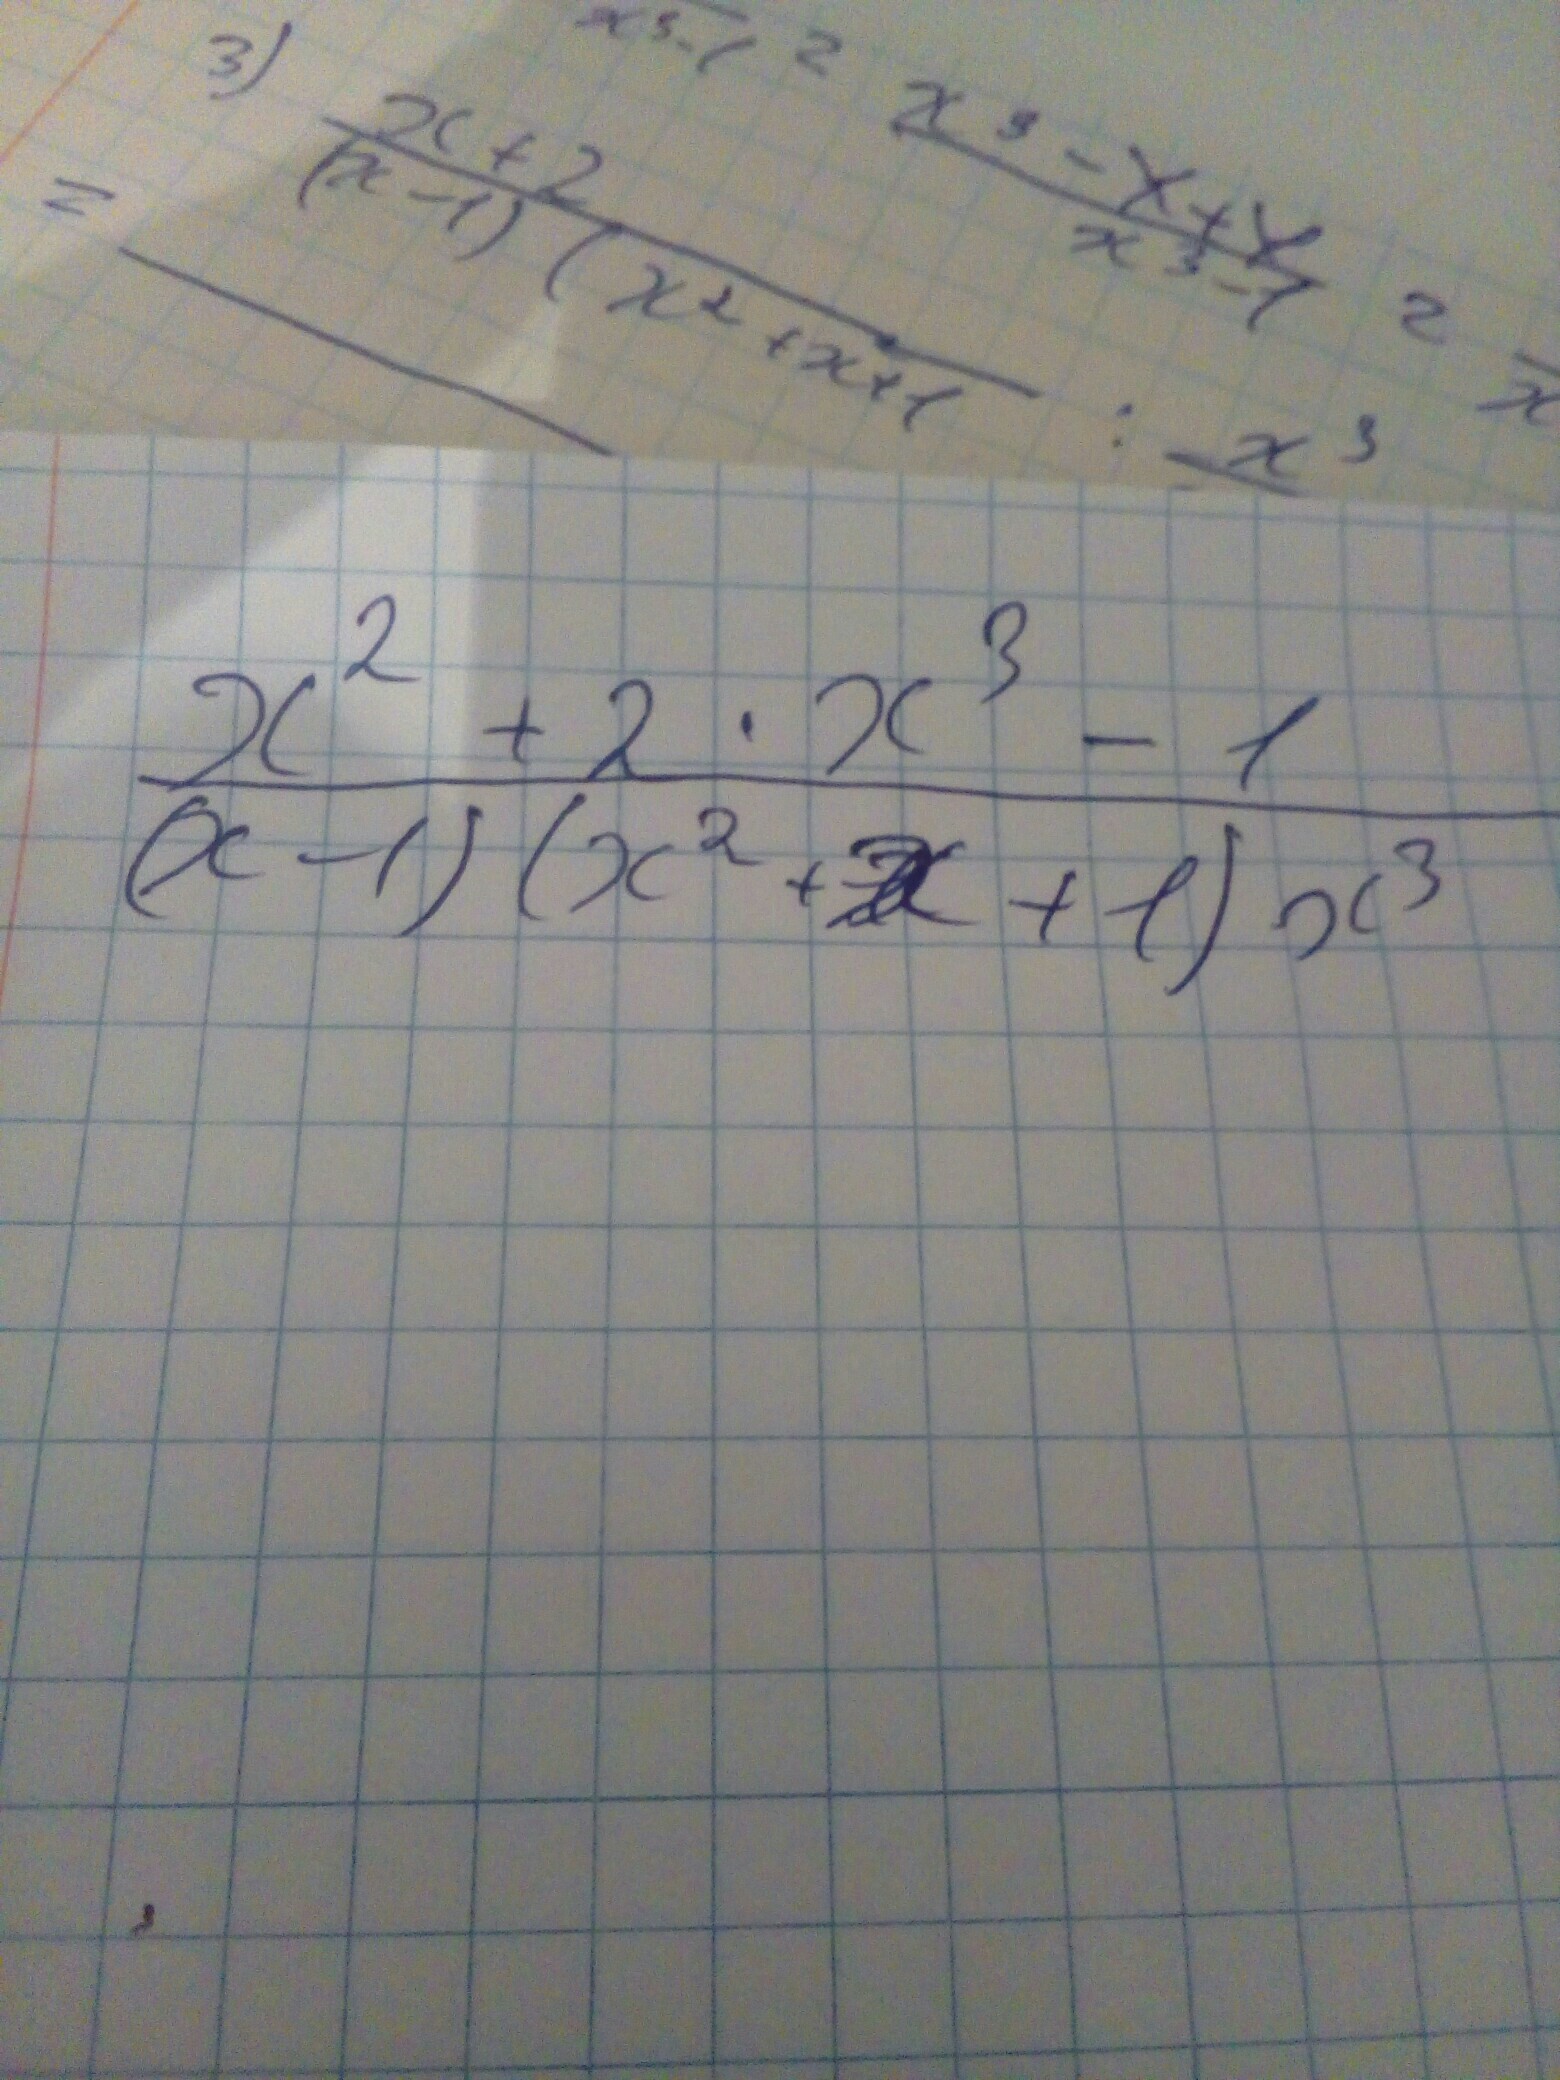 x³-1 = x³-1+1 / x³-1 = x
3) x+2 / (x-1)(x²+x+1 : x³
=
x² + 2 · x³ - 1
(x-1)(x²+x+1)x³